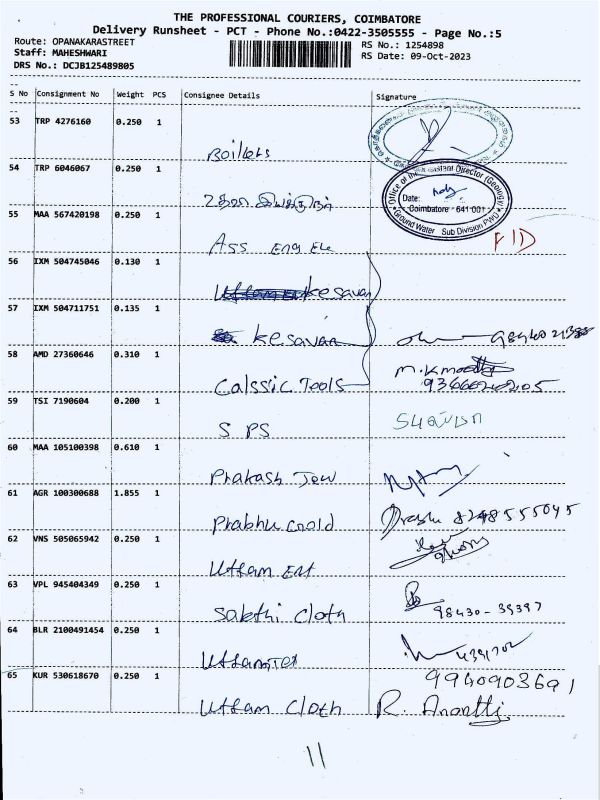 THE PROFESSIONAL COURIERS, COIMBATORE
Delivery Runsheet - PCT - Phone No.:0422-3505555 - Page No.:5
Route: OPANAKARASTREET
RS No.: 1254898
Staff: MAHESHWARI
RS Date: 09-Oct-2023
DRS No.: DCJB125489805
S No Consignment No Weight PCS Consignee Details Signature
53 TRP 4276160 0.250 1
Boilers
54 TRP 6046067 0.250 1
Office of the Assistant Director (Geology)
Date:
Coimbatore - 641 001
Ground Water Sub Division PWD
55 MAA 567420198 0.250 1
Ass Eng Ele
56 IXM 504745046 0.130 1
Kesavan
57 IXM 504711751 0.135 1
Kesavan
58 AMD 27360646 0.310 1
M.K
Calssic Tools
59 TSI 7190604 0.200 1
S PS
60 MAA 105100398 0.610 1
Prakash Jew
61 AGR 100300688 1.855 1
Prabhu Goold 8248555045
62 VNS 505065942 0.250 1
Uttam Ent
63 VPL 945404349 0.250 1
Sakthi Cloth 98430-39397
64 BLR 2100491454 0.250 1
Uttam Tex
65 KUR 530618670 0.250 1
9940903691
Uttam Cloth R. Ananthi
11